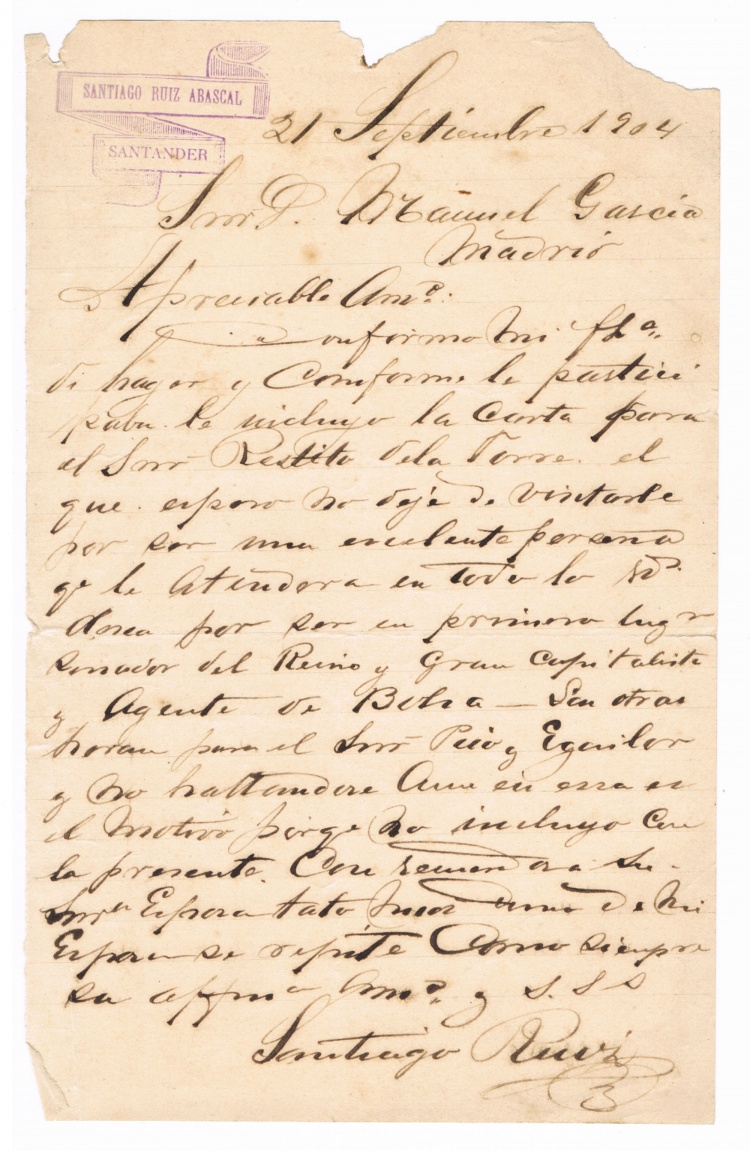 SANTIAGO RUIZ ABASCAL
SANTANDER
21 Septiembre 1904
Snr D. Manuel Garcia
Madrid
Apreciable Amo:
Conforme mi fha.
di hayer y Comforme le partici
paba le incluyo la Carta para
el Snr Restito dela Torre el
que espero no deje de visitarle
por ser una excelente persona
qe le Atendera en todo lo
desea por ser en primero lugr
senador del Reino y Gran Capitaliste
y Agente de Bolsa — Sin otras
para el Snr Pico y Eguilor
y no hallandose Aun en essa es
el motivo porqe no incluyo Con
la presente. Con a su
Snra Esposa tato de mi
Esposa se repite Como siempre
su affmo Amo. y S. S s
Santiago Ruiz